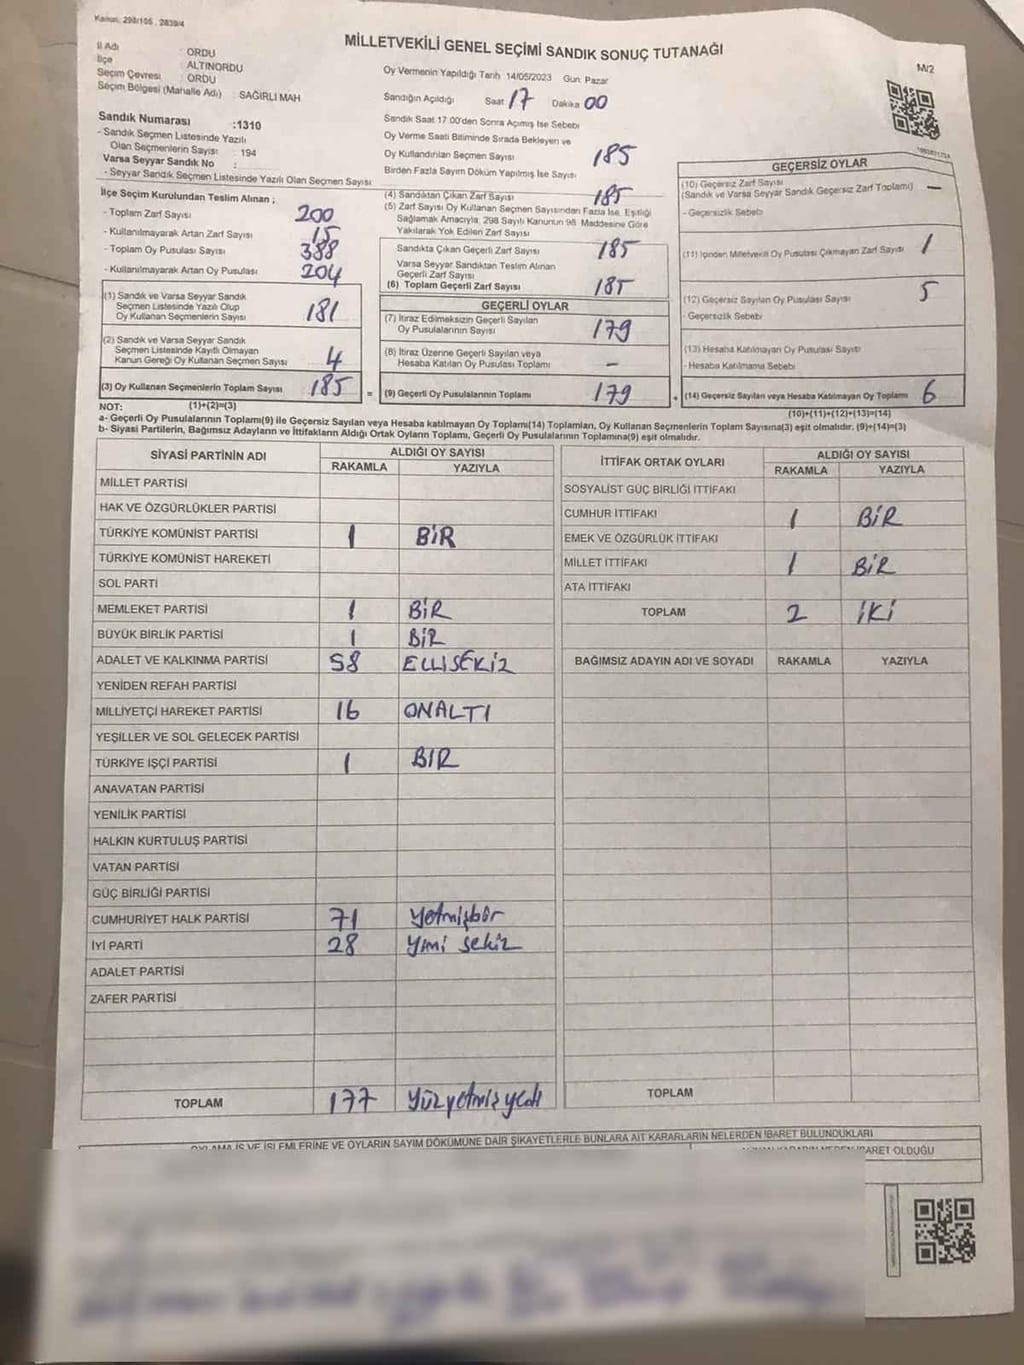 Kanun, 298/105 , 2839/4
MİLLETVEKİLİ GENEL SEÇİMİ SANDIK SONUÇ TUTANAĞI
M/2
İl Adı : ORDU
İlçe : ALTINORDU
Seçim Çevresi : ORDU
Seçim Bölgesi (Mahalle Adı) : SAĞIRLI MAH
Sandık Numarası :1310
- Sandık Seçmen Listesinde Yazılı
Olan Seçmenlerin Sayısı : 194
Varsa Seyyar Sandık No :
- Seyyar Sandık Seçmen Listesinde Yazılı Olan Seçmen Sayısı
İlçe Seçim Kurulundan Teslim Alınan ;
- Toplam Zarf Sayısı 200
- Kullanılmayarak Artan Zarf Sayısı 15
- Toplam Oy Pusulası Sayısı 388
- Kullanılmayarak Artan Oy Pusulası 204
(1) Sandık ve Varsa Seyyar Sandık
Seçmen Listesinde Yazılı Olup
Oy Kullanan Seçmenlerin Sayısı 181
(2) Sandık ve Varsa Seyyar Sandık
Seçmen Listesinde Kayıtlı Olmayan
Kanun Gereği Oy Kullanan Seçmen Sayısı 4
(3) Oy Kullanan Seçmenlerin Toplam Sayısı 185 =
Oy Vermenin Yapıldığı Tarih 14/05/2023 Gün: Pazar
Sandığın Açıldığı Saat 17 Dakika 00
Sandık Saat 17.00'den Sonra Açımış İse Sebebi
Oy Verme Saati Bitiminde Sırada Bekleyen ve
Oy Kullandırılan Seçmen Sayısı 185
Birden Fazla Sayım Döküm Yapılmış İse Sayısı
(4) Sandıktan Çıkan Zarf Sayısı 185
(5) Zarf Sayısı Oy Kullanan Seçmen Sayısından Fazla İse, Eşitliği
Sağlamak Amacıyla, 298 Sayılı Kanunun 98. Maddesine Göre
Yakılarak Yok Edilen Zarf Sayısı
Sandıkta Çıkan Geçerli Zarf Sayısı 185
Varsa Seyyar Sandıktan Teslim Alınan
Geçerli Zarf Sayısı
(6) Toplam Geçerli Zarf Sayısı 185
GEÇERLİ OYLAR
(7) İtiraz Edilmeksizin Geçerli Sayılan
Oy Pusulalarının Sayısı 179
(8) İtiraz Üzerine Geçerli Sayılan veya
Hesaba Katılan Oy Pusulası Toplamı -
(9) Geçerli Oy Pusulalarının Toplamı 179 +
GEÇERSİZ OYLAR
(10) Geçersiz Zarf Sayısı
(Sandık ve Varsa Seyyar Sandık Geçersiz Zarf Toplamı) -
- Geçersizlik Sebebi
(11) İçinden Milletvekili Oy Pusulası Çıkmayan Zarf Sayısı 1
(12) Geçersiz Sayılan Oy Pusulası Sayısı 5
- Geçersizlik Sebebi
(13) Hesaba Katılmayan Oy Pusulası Sayısı
- Hesaba Katılmama Sebebi
(14) Geçersiz Sayılan veya Hesaba Katılmayan Oy Toplamı 6
NOT: (1)+(2)=(3)
(10)+(11)+(12)+(13)=(14)
a- Geçerli Oy Pusulalarının Toplamı(9) ile Geçersiz Sayılan veya Hesaba katılmayan Oy Toplamı(14) Toplamları, Oy Kullanan Seçmenlerin Toplam Sayısına(3) eşit olmalıdır. (9)+(14)=(3)
b- Siyasi Partilerin, Bağımsız Adayların ve İttifakların Aldığı Ortak Oyların Toplamı, Geçerli Oy Pusulalarının Toplamına(9) eşit olmalıdır.
SİYASİ PARTİNİN ADI ALDIĞI OY SAYISI
RAKAMLA YAZIYLA
MİLLET PARTİSİ
HAK VE ÖZGÜRLÜKLER PARTİSİ
TÜRKİYE KOMÜNİST PARTİSİ 1 BİR
TÜRKİYE KOMÜNİST HAREKETİ
SOL PARTİ
MEMLEKET PARTİSİ 1 BİR
BÜYÜK BİRLİK PARTİSİ 1 BİR
ADALET VE KALKINMA PARTİSİ 58 ELLİSEKİZ
YENİDEN REFAH PARTİSİ
MİLLİYETÇİ HAREKET PARTİSİ 16 ONALTI
YEŞİLLER VE SOL GELECEK PARTİSİ
TÜRKİYE İŞÇİ PARTİSİ 1 BIR
ANAVATAN PARTİSİ
YENİLİK PARTİSİ
HALKIN KURTULUŞ PARTİSİ
VATAN PARTİSİ
GÜÇ BİRLİĞİ PARTİSİ
CUMHURİYET HALK PARTİSİ 71 yetmişbir
İYİ PARTİ 28 yimi sekiz
ADALET PARTİSİ
ZAFER PARTİSİ
TOPLAM 177 yüzyetmişyedi
İTTİFAK ORTAK OYLARI ALDIĞI OY SAYISI
RAKAMLA YAZIYLA
SOSYALİST GÜÇ BİRLİĞİ İTTİFAKI
CUMHUR İTTİFAKI 1 BİR
EMEK VE ÖZGÜRLÜK İTTİFAKI
MİLLET İTTİFAKI 1 BİR
ATA İTTİFAKI
TOPLAM 2 İKİ
BAĞIMSIZ ADAYIN ADI VE SOYADI RAKAMLA YAZIYLA
TOPLAM
OYLAMA İŞ VE İŞLEMLERİNE VE OYLARIN SAYIM DÖKÜMÜNE DAİR ŞİKAYETLERLE BUNLARA AİT KARARLARIN NELERDEN İBARET BULUNDUKLARI
İBARET OLDUĞU